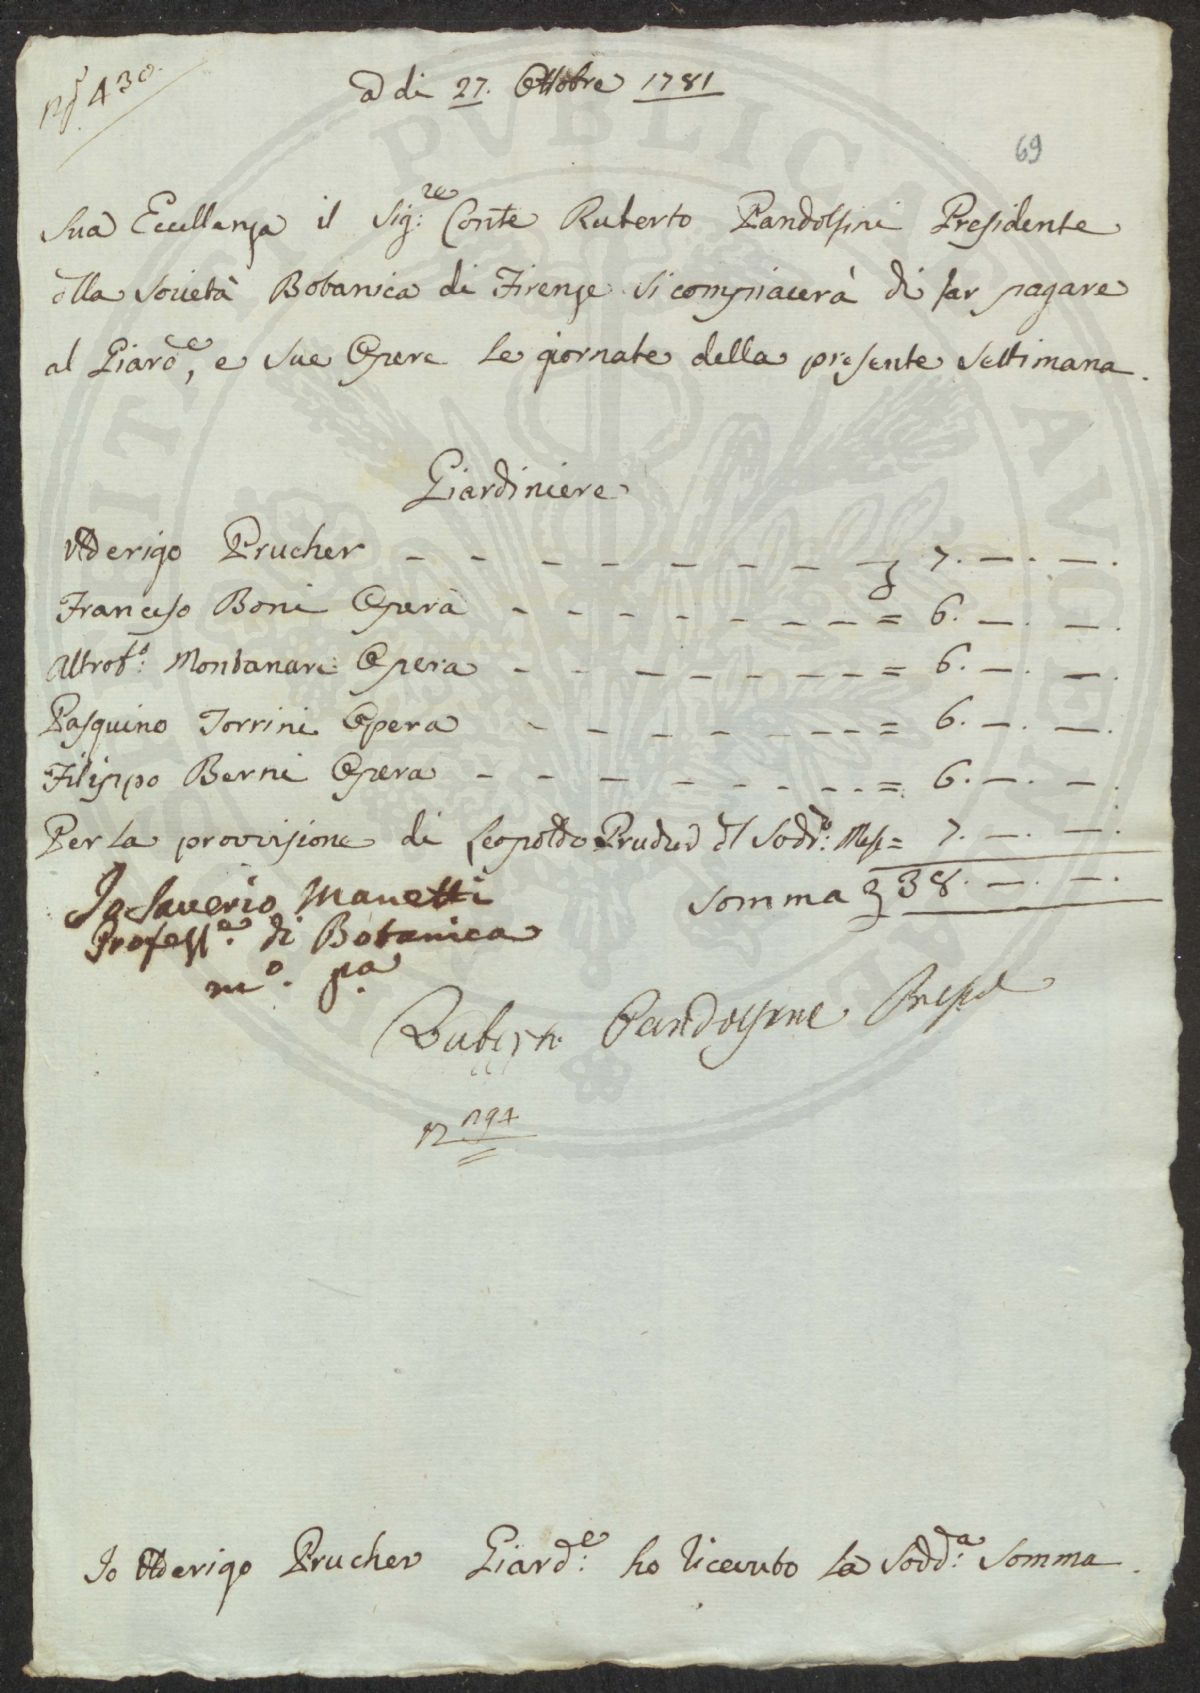 N.° 430.
a di 27. Ottobre 1781
69
Sua Eccellenza il Sig:re Conte Ruberto Pandolfini Presidente
dlla Società Botanica di Firenze si compiacerà di far pagare
al Giard:e, e sue Opere le giornate della presente Settimana.
Giardiniere
Uderigo Prucher - - - - - - - - 7. —. —.
Francesco Boni Opera - - - - - - - = 6. —. —.
Montanari Opera - - - - - - - = 6. —. —.
Pasquino Torrini Opera - - - - - - - = 6. —. —.
Filippo Berni Opera - - - - - - - = 6. —. —.
Per la provvisione di Leopoldo Prucher dl Sodd:o Mese = 7. —. —.
Somma 38. —. —.
Io Saverio Manetti
Profess:e di Botanica
m:o p:a
Ruberto Pandolfini Presid
Io Uderigo Prucher Giard:e ho ricevuto la Sodd:a Somma.
PVBLICA